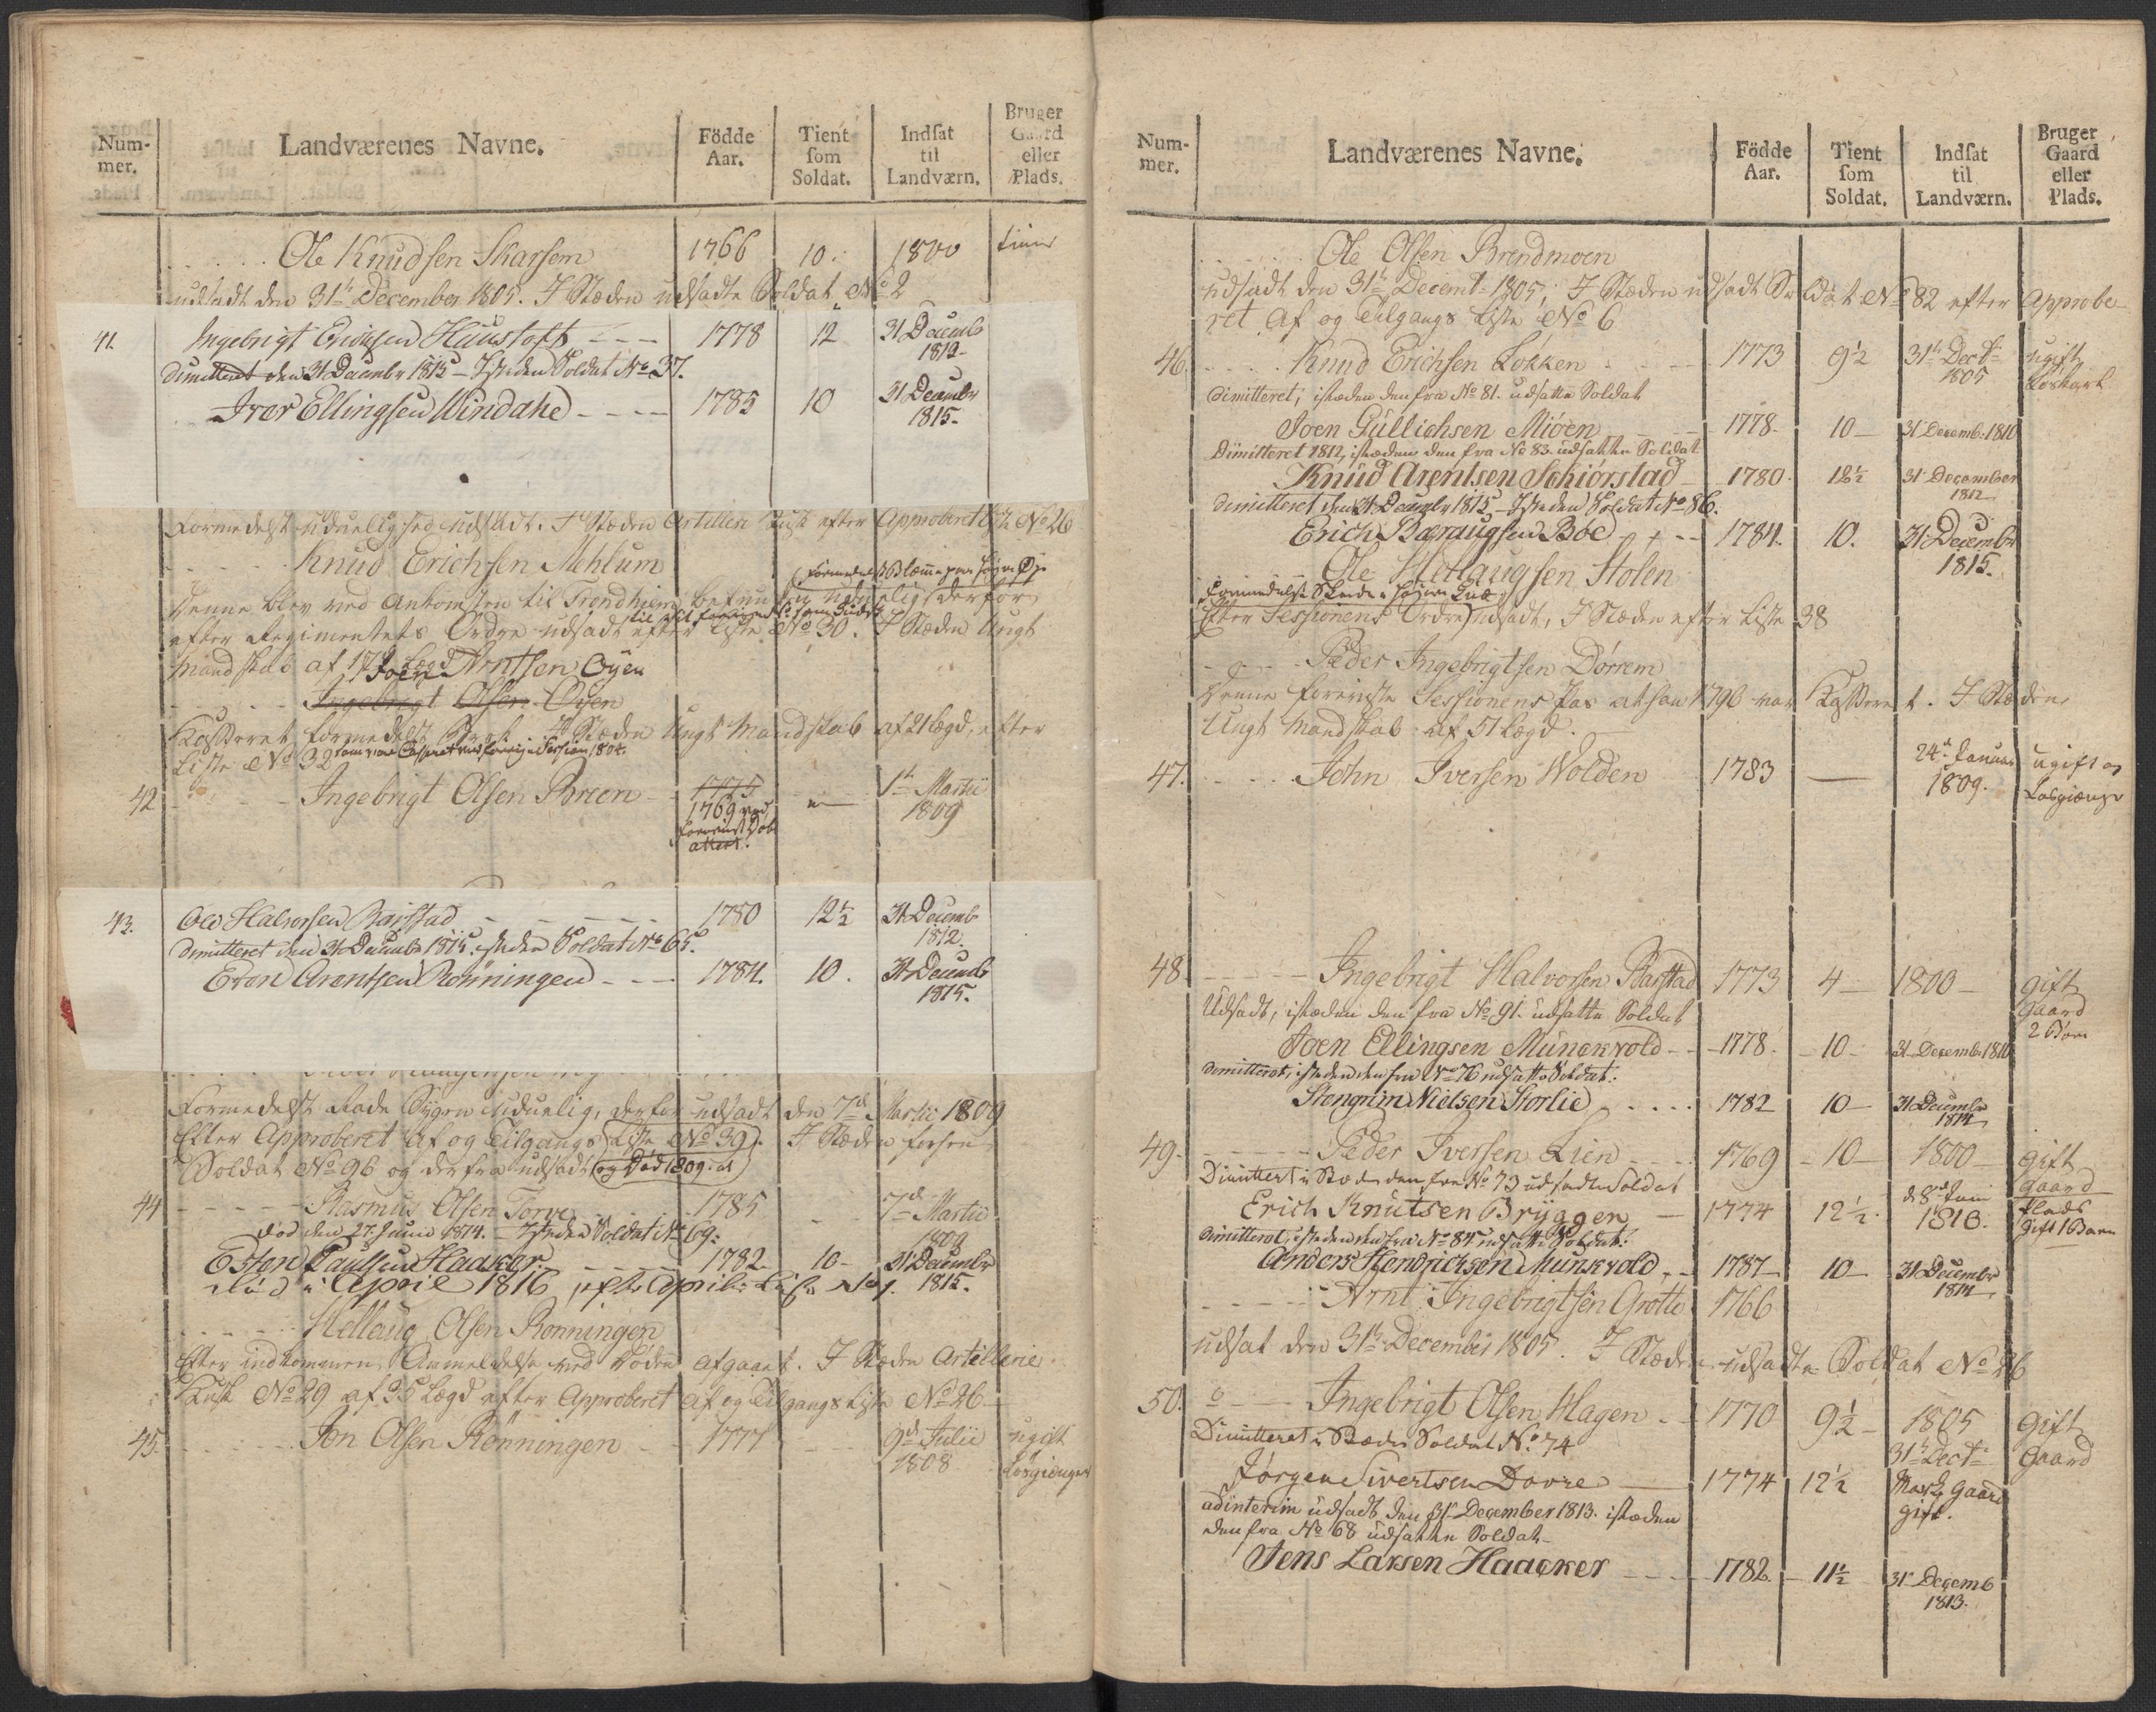 Num-
mer.
Landværenes Navne.
Födde
Aar.
Tient
som
Soldat.
Indsat
til
Landværn.
Bruger
Gaard
eller
Plads.
Ole Knudsen Skarsem 1766 10. 1800
udsadt den 31te December 1805. I Stæden udsadte Soldat No 2
41. Ingebrigt Erichsen Huustoft 1778 12 31 Decembr
1812
dimitteret den 31 Decembr 1815 - Isteden Soldat No 37.
Iver Ellingsen Windahl 1785 10 31 Decembr
1815.
Formedelst uduelighed udsadt. I Stæden Artillerie Kusk efter Approberet No 26
Knud Erichsen Mehlum
denne blev ved Ankomsten til Trondhiem befunden uduelig derfor
efter Regimentets Ordre udsadt efter Liste No 30. I Stæden Ungt
Mandskab af 17 Lægd
Joen Arntsen Øyen
Ingebrigt Olsen Øyen
Kasseret formedelst I Stæden Ungt Mandskab af 21 Lægd, efter
Liste No 32
42 Ingebrigt Olsen Breen 1775 1te Martii
1809
1769
43. Ole Halvorsen Barstad 1780 12½ 31 Decembr
1812.
dimitteret den 31 Decembr 1815. isteden Soldat No 65.
Even Arentsen Rönningen 1784. 10. 31 Decembr
1815.
Formedelst Rade Sygen uduelig, derfor udsadt den 7de Martii 1809
Efter Approberet Af og Tilgangs Liste No 39. I Stæden
Soldat No 96 og derfra udsadt og död 1809.
44 Rasmus Olsen Torve 1785 7de Martii
1809
död den 27. Junii 1814. - Isteden Soldat No 69.
Esten Paulsen Haaker 1782. 10 31 Decembr
1815.
död i April 1816, efter Aprils Liste
Hellaug Olsen Rönningen
Efter indkommen Anmeldelse ved Döden afgaaet. I Stæden Artillerie
Kusk No 29 af 35 Lægd efter Approberet Af og Tilgangs Liste No 26
45. Jon Olsen Rönningen 1777 9de Julii
1808
ugift
Losgiænger
Num-
mer.
Landværenes Navne.
Födde
Aar.
Tient
som
Soldat.
Indsat
til
Landværn.
Bruger
Gaard
eller
Plads.
Ole Olsen Brendmoen
udsadt den 31te Decembr 1805, I Stæden udsadt Soldat No 82 efter Approbe-
ret Af og Tilgangs Liste No 6
46. Knud Erichsen Lökken 1773 9½ 31te Decbr
1805
ugift
Dimitteret, istæden den fra No 81. udsatte Soldat
Joen Gullichsen Miöen 1778. 10 31 Decemb. 1810
Dimitteret 1812, istæden den fra No 83. udsatte Soldat
Knud Arentsen Schiörstad 1780. 12½ 31 December
1812
dimitteret den 31 Decembr 1815 - Isteden Soldat No 86.
Erich Baraugsen Böe 1784. 10. 31 Decembr
1815.
Ole Hellaugsen Stolen
Efter Sessionens Ordre udsadt, I Stæden efter Liste 38
Peder Ingebrigtsen Dörrem
denne foreviste Sessionens Pas at han 1796 var Kasseret. I Stæden
Ungt Mandskab af 51 Lægd.
47. John Iversen Wolden 1783 24de Januar
1809.
ugift og
Losgiænger
48 Ingebrigt Halvorsen Barstad 1773 4 1800 gift
Gaard
2 Börn
Udsadt, istæden den fra No 91. udsatte Soldat
Joen Ellingsen Munckvold 1778. 10 31 Decemb. 1810
dimitteret, isteden den fra No 76 udsatte Soldat.
Stengrim Nielsen Storlie 1782 10 31 Decembr
1814
49. Peder Iversen Lien 1769 10 1800 gift
Gaard
Dimittert i Stæden den fra No 73 udsadte Soldat
Erich Knutsen Bryggen 1774 12½. d. 8de Juni
1810.
Plads
gift 1 Barn
dimitteret, isteden den fra No 84 udsatte Soldat.
Anders Hendricksen Munkvold 1787 10 31 Decembr
1814
Arnt Ingebrigtsen Grotte 1766
udsat den 31te December 1805. I Stæden udsadte Soldat No 26
50. Ingebrigt Olsen Hagen 1770 9½ 1805
31te Decbr
Gift
Gaard
Dimitteret i Stæden Soldat No. 74
Jörgen Sivertsen Dovre 1774 12½ Gaard
gift.
adinterim udsadt den 31 December 1813. istæden
den fra No 68 udsatte Soldat
Jens Larsen Haacker 1782. 11½ 31 Decemb
1813.